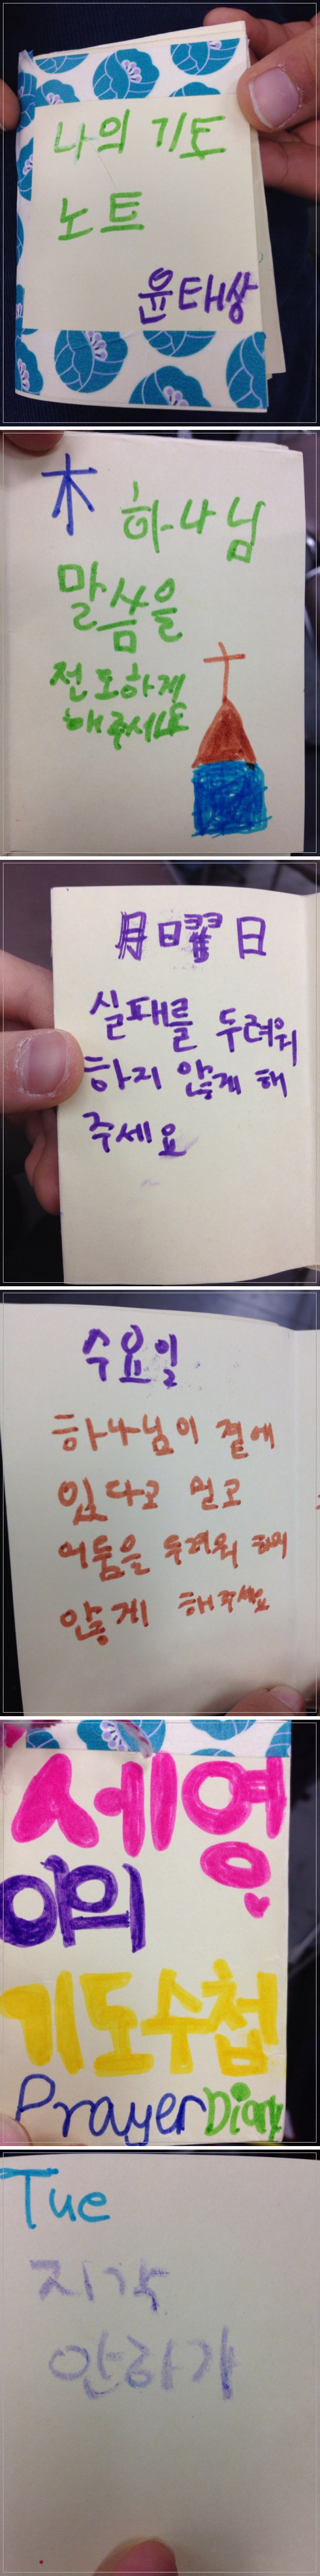 나의 기도
노트
윤태상
木 하나님
말씀을
전도하게
해주세요
月曜日
실패를 두려워
하지 않게 해
주세요
수요일
하나님이 곁에
있다고 믿고
어둠을 두려워 하지
않게 해주세요
세영
이의
기도수첩
Prayer Diary
Tue
지각
안하기